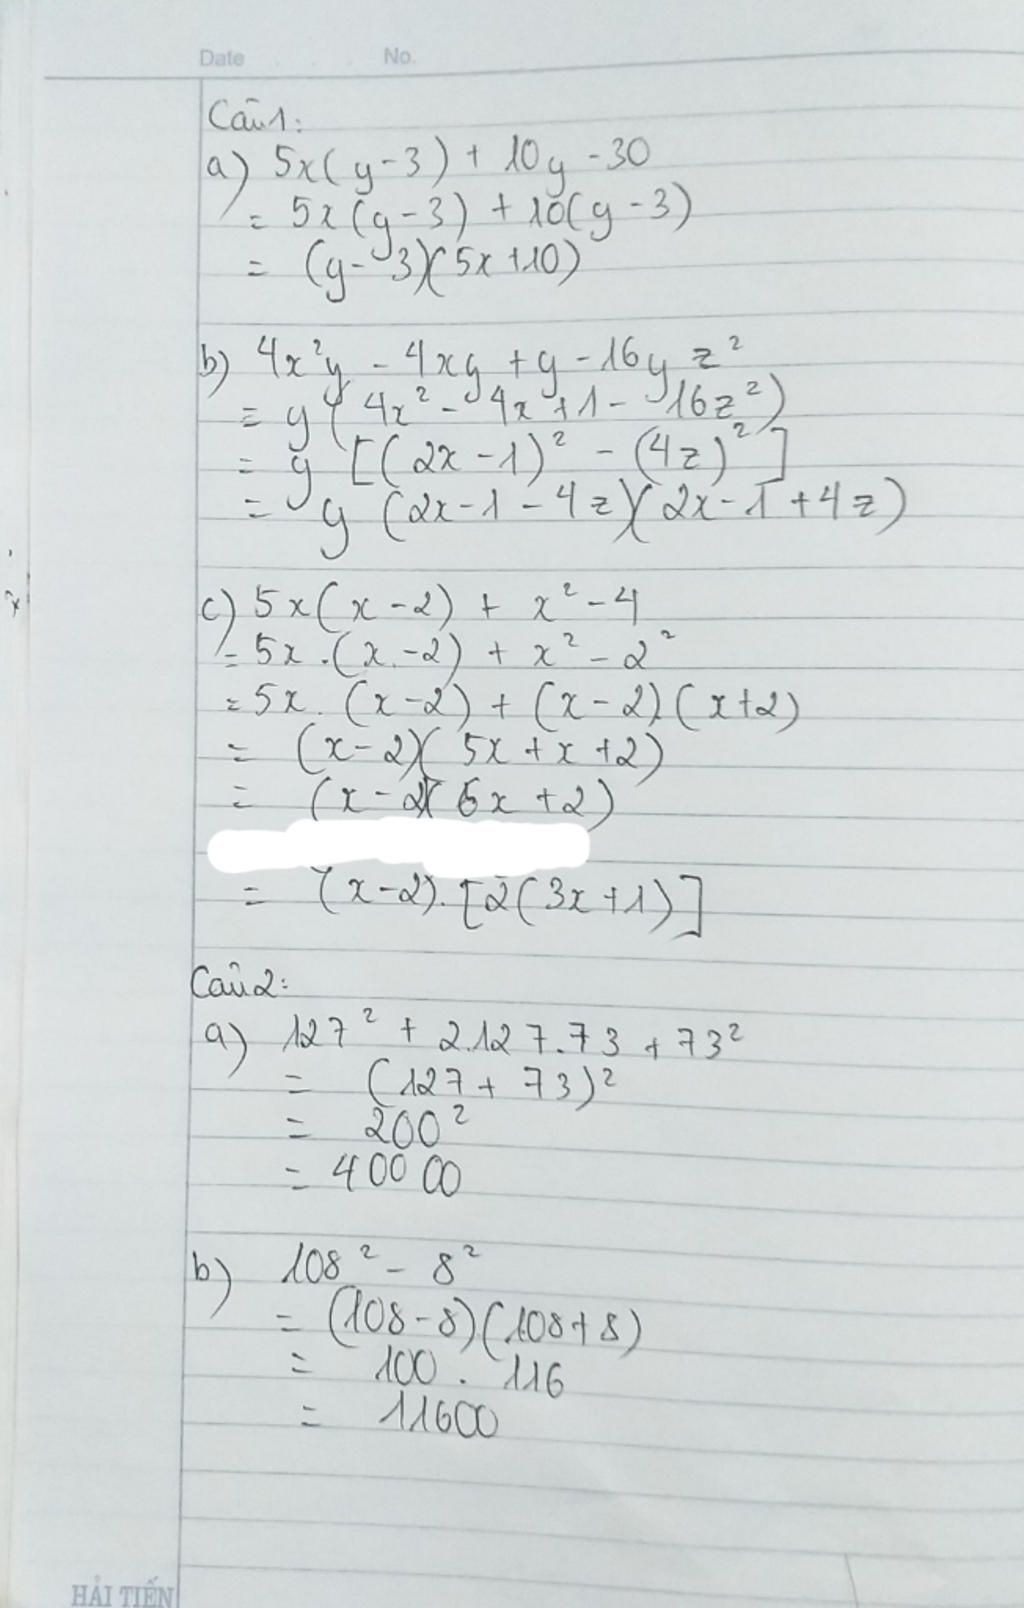 Date No.
Câu 1:
a) 5x(y-3) + 10y - 30
= 5x(y-3) + 10(y-3)
= (y-3)(5x+10)
b) 4x²y - 4xy + y - 16yz²
= y(4x² - 4x + 1 - 16z²)
= y [(2x-1)² - (4z)²]
= y (2x-1-4z)(2x-1+4z)
c) 5x(x-2) + x² - 4
= 5x.(x-2) + x² - 2²
= 5x.(x-2) + (x-2).(x+2)
= (x-2)(5x+x+2)
= (x-2)(6x+2)
= (x-2).[2(3x+1)]
Câu 2:
a) 127² + 2.127.73 + 73²
= (127+73)²
= 200²
= 40000
b) 108² - 8²
= (108-8)(108+8)
= 100 . 116
= 11600
HẢI TIẾN